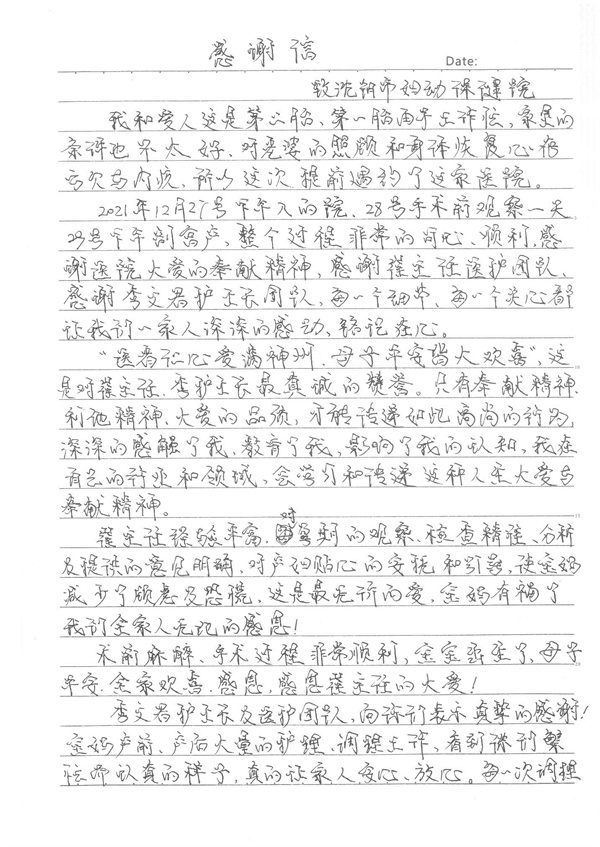 感谢信
Date:
致沈阳市妇幼保健院
我和爱人这是第二胎、第一胎由于工作忙、家里的
条件也不太好、对老婆的照顾和身体恢复心有
亏欠与内疚、所以这次提前遇约了这家医院。
2021年12月27号下午入的院、28号手术前观察一天
29号下午剖宫产、整个过程非常的可心、顺利、感
谢医院大爱的奉献精神、感谢翟主任医护团队、
感谢李文君护士长团队、每一个细节、每一个关心都
让我们一家人深深的感动、铭记在心。
"医者仁心爱满神州、母子平安皆大欢喜"、这
是对翟主任、李护士长最真诚的赞誉。只有奉献精神、
利他精神、大爱的品质、才能传递如此高尚的行为、
深深的感触了我、教育了我、影响了我的认知、我在
自己的行业和领域、会学习和传递这种人生大爱与
奉献精神。
翟主任经验丰富、对孕期的观察、检查精准、分析
及提供的意见明确、对产妇贴心的安抚和引导、使宝妈
减少了顾虑及恐慌、这是最无价的爱、宝妈有福了
我们全家人无比的感恩!
术前麻醉、手术过程非常顺利、宝宝出生了、母子
平安、全家欢喜、感恩、感恩翟主任的大爱!
李文君护士长及医护团队、向你们表示真挚的感谢!
宝妈产前、产后大量的护理、调理工作、看到你们繁
忙而认真的样子、真的让家人安心、放心。每一次调理